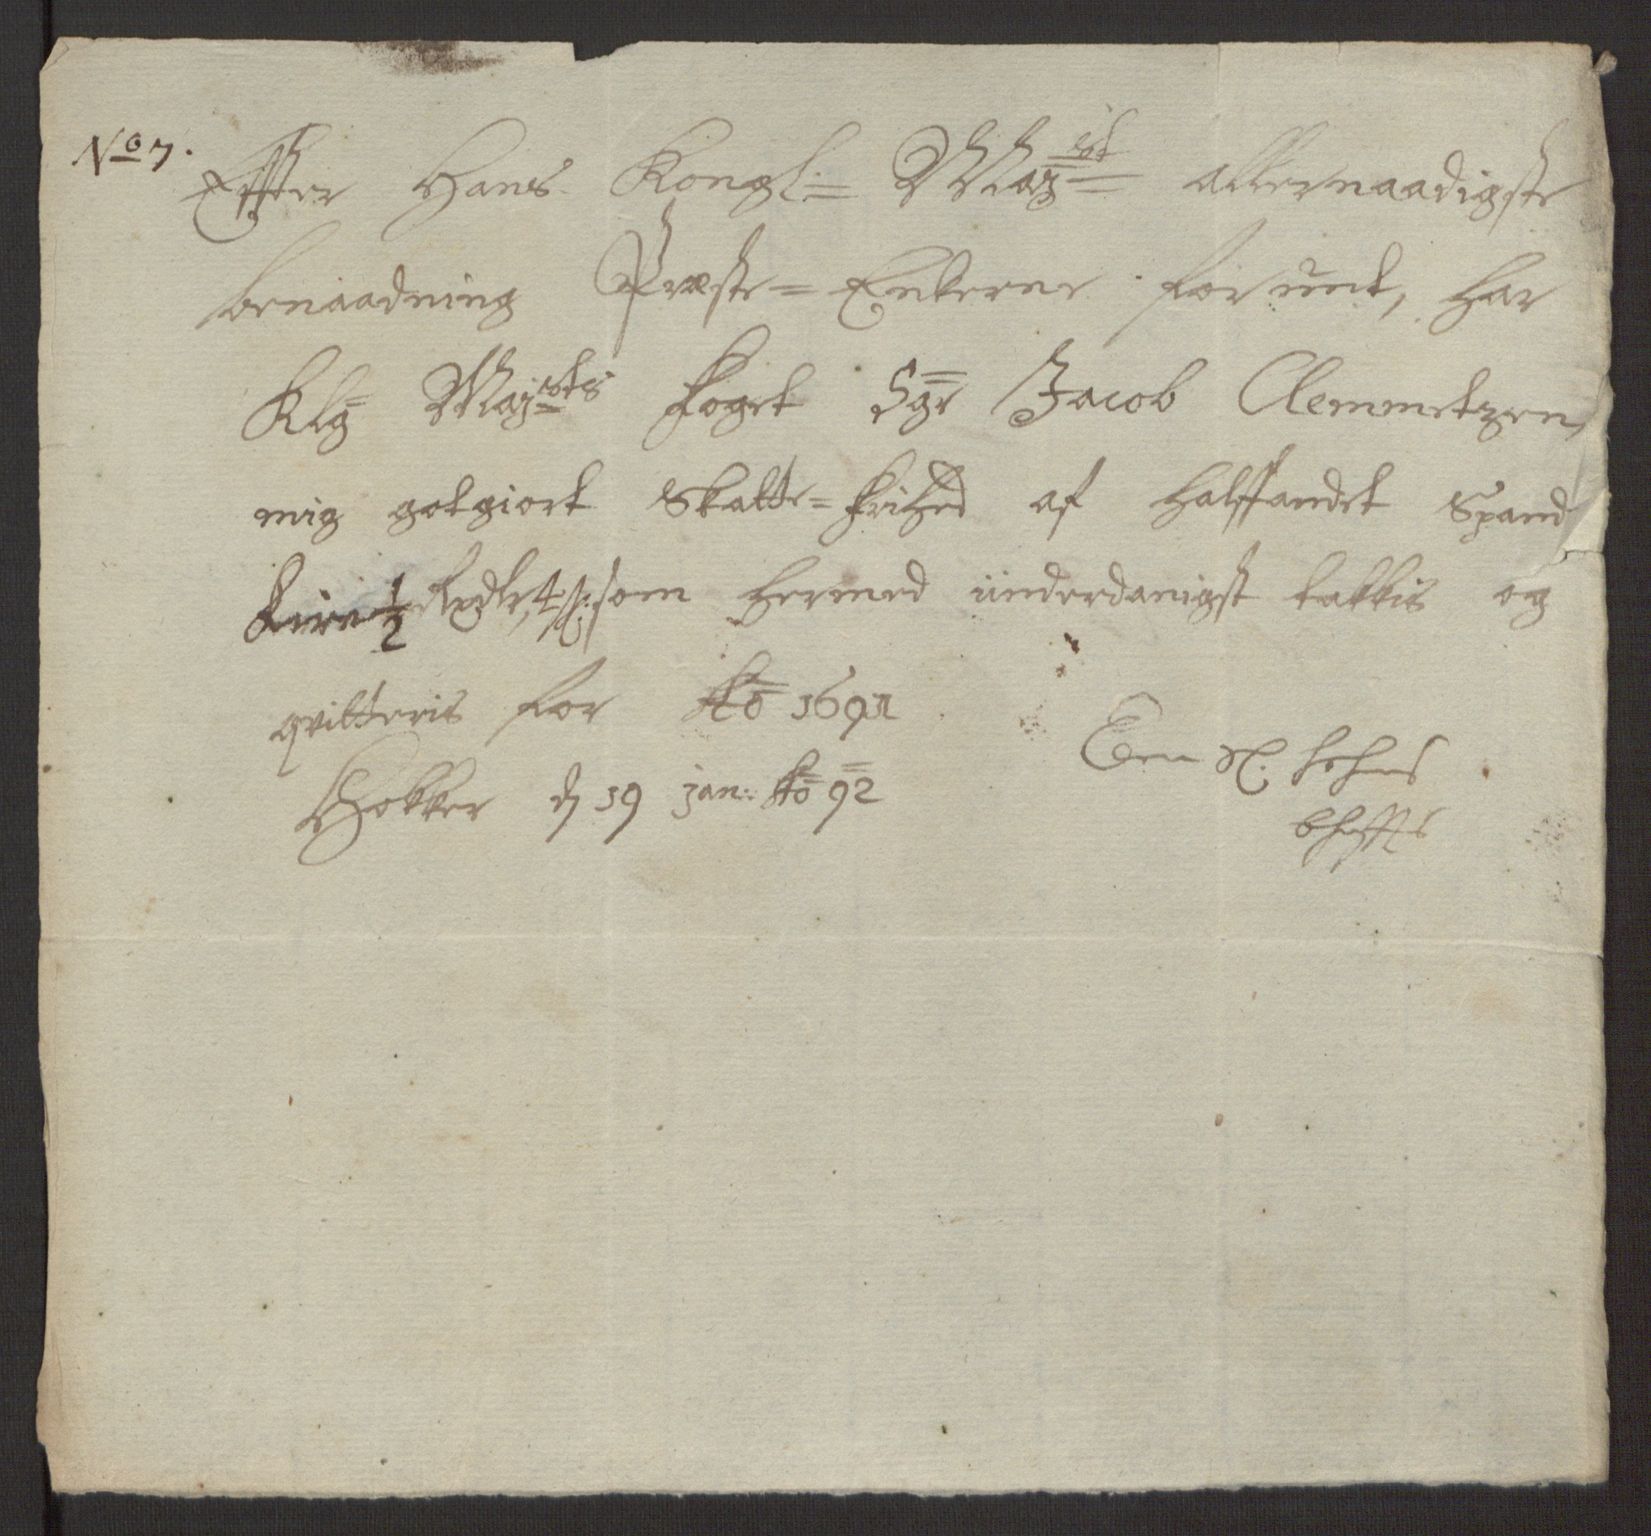 No 7.
Effter Hans Kongl:= Maj:st allernaadigste
benaadning Præste=Enkerne forundt, har
Klg Maj:sts foget Sgr Jacob Clemmetzen,
mig gotgiort Skatte=frihed af halffandet Spand
½ som hermed underdanigst takkis og
qvitteris for Ao 1691
Hokker d 19 jan: Ao 92